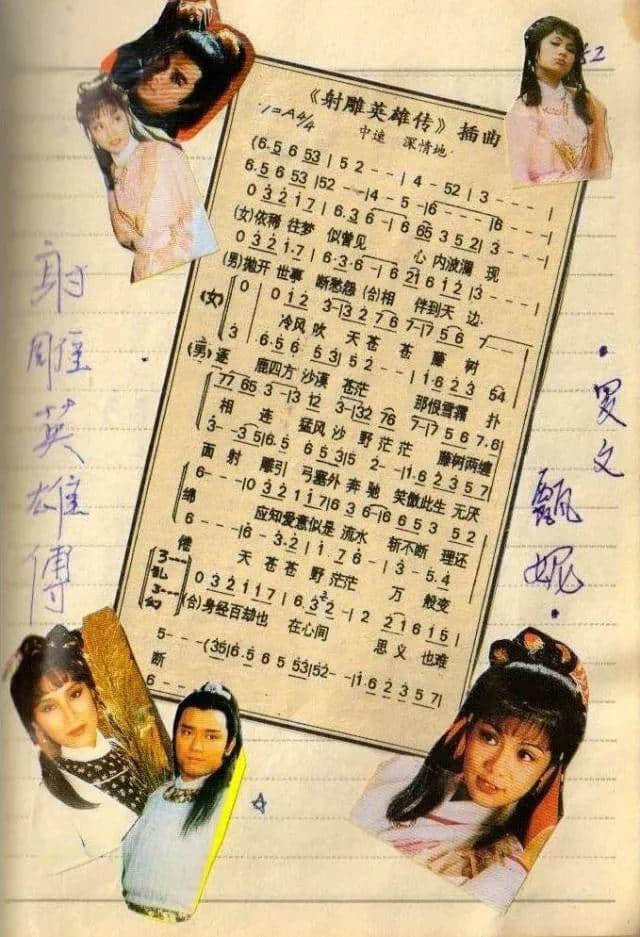 《射雕英雄传》插曲
1=A 4/4
中速 深情地
(6·5 6 53 | 5 2 - - | 4 - 52 | 3 - - - |
6·5 6 53 | 52 - - | 4 - 5 - | 6 - - - | 6 - - - )
0 3 2 1 7 | 6·3 6 - | 6 65 3 5 2 | 3 - - - |
(女)依稀 往梦 似曾见 心 内波澜 现
0 3 2 1·7 | 6·3·6 - | 6 21 6 1 2 | 3 - - - |
(男)抛开 世事 断愁怨 (合)相 伴到天 边
(女) 0 0 1 2 3 - | 3 2 7 6 7 - | 7 5 6 7 - - -
冷风吹 天 苍 苍 藤 树
3 6·5 6 5 3 | 5 2 - - | 1·6 2 3 54
(男)逐 鹿四方 沙漠 苍茫 那恨雪霜 扑
77 65 3 - | 3 12 3 - | 3 32 76 7 - | 7 5 6 7·6
相 连 猛风 沙 野 茫茫 藤树两缠
3 - - 3 5 | 6·5 6 5 3 | 5 2 - - | 1·6 2 3 5 7 |
面 射 雕引 弓塞外 奔 驰 笑傲此生 无厌
6 - - - | 0 3 2 1 1 7 | 6 3 6 - | 6 6 5 3 5 2 |
绵 应知爱意似是 流水 斩不断 理还
6 - - - | 6 - 3·2 | 1 7 6 - | 3 - 5·4
倦 天 苍苍 野 茫茫 万 般变
3 - - - 0 3 2 1 1 7 | 6·3 2 - | 2 2 1 6 1 5 |
乱
3 - - -
幻 (合)身经百劫也 在心间 恩义 也难
5 - - - (35 | 6·5 6 5 53 | 52 - - | 1·6 2 3 5 7 |
断
6 - -
射雕英雄傅
罗文
甄妮